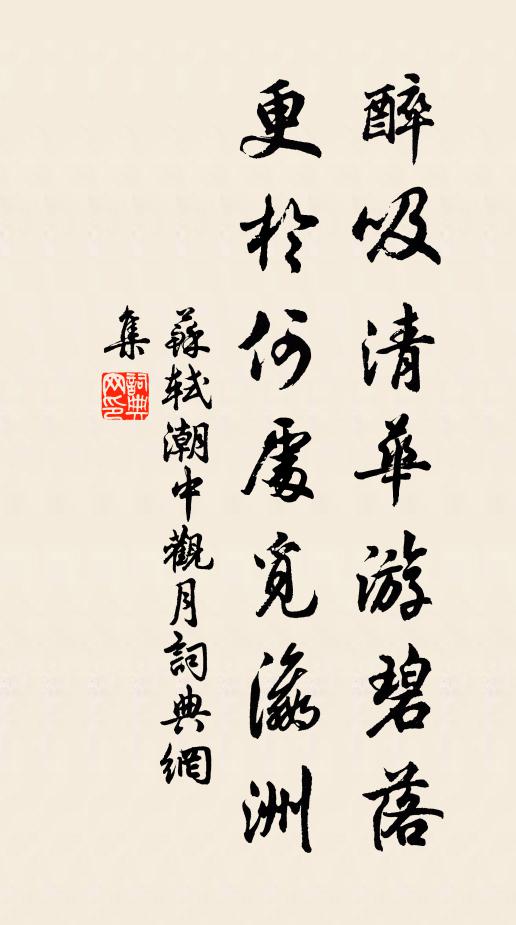 醉吸清華游碧落
更於何處覓瀛洲
蘇軾潮中觀月詞典網
集
詞典网印